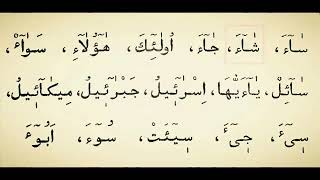 سَآءَ، شَآءَ، جَآءَ، اُولٰٓئِكَ، هٰٓؤُلَآءِ، سَوَآءٌ،
سَآئِلٌ، يٰٓاَيُّهَا، اِسْرَآئِيلُ، جَبْرَآئِيلُ، مِيكَآئِيلُ،
سِيٓءَ، جِيٓءَ، سِيٓئَتْ، سُوٓءَ، اَبُوٓءُ